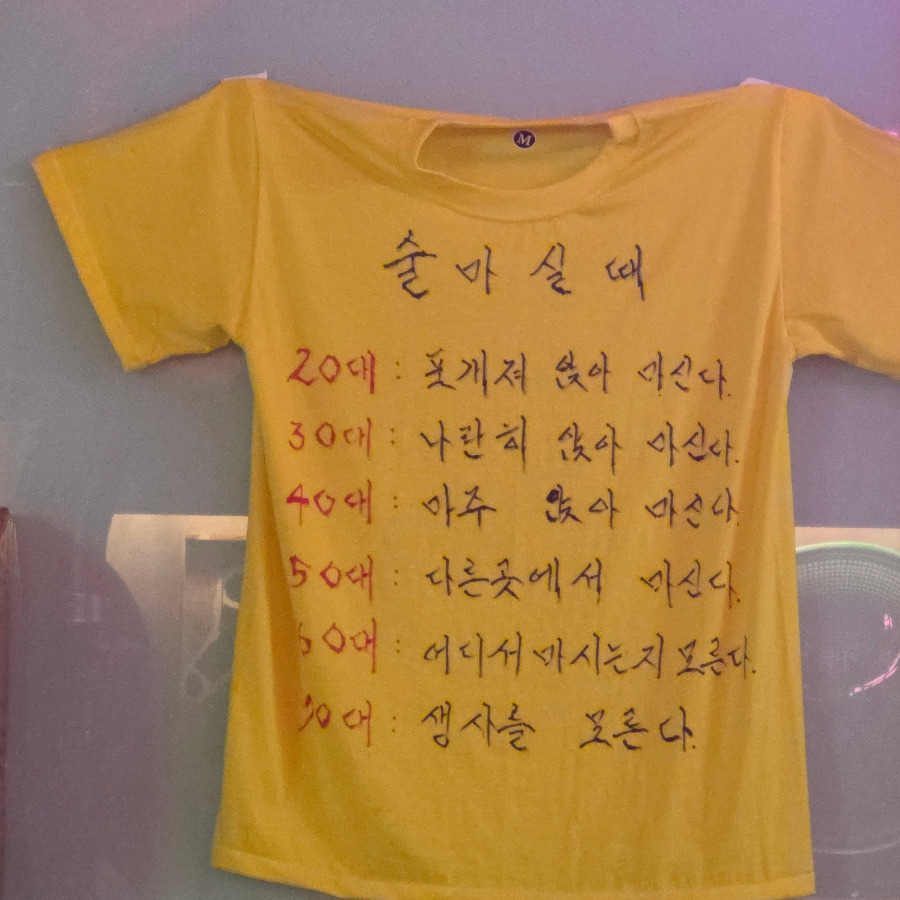 M
술 마 실 때
20대 : 포개져 앉아 마신다.
30대 : 나란히 앉아 마신다.
40대 : 마주 앉아 마신다.
50대 : 다른곳에서 마신다.
60대 : 어디서 마시는지 모른다.
70대 : 생사를 모른다.